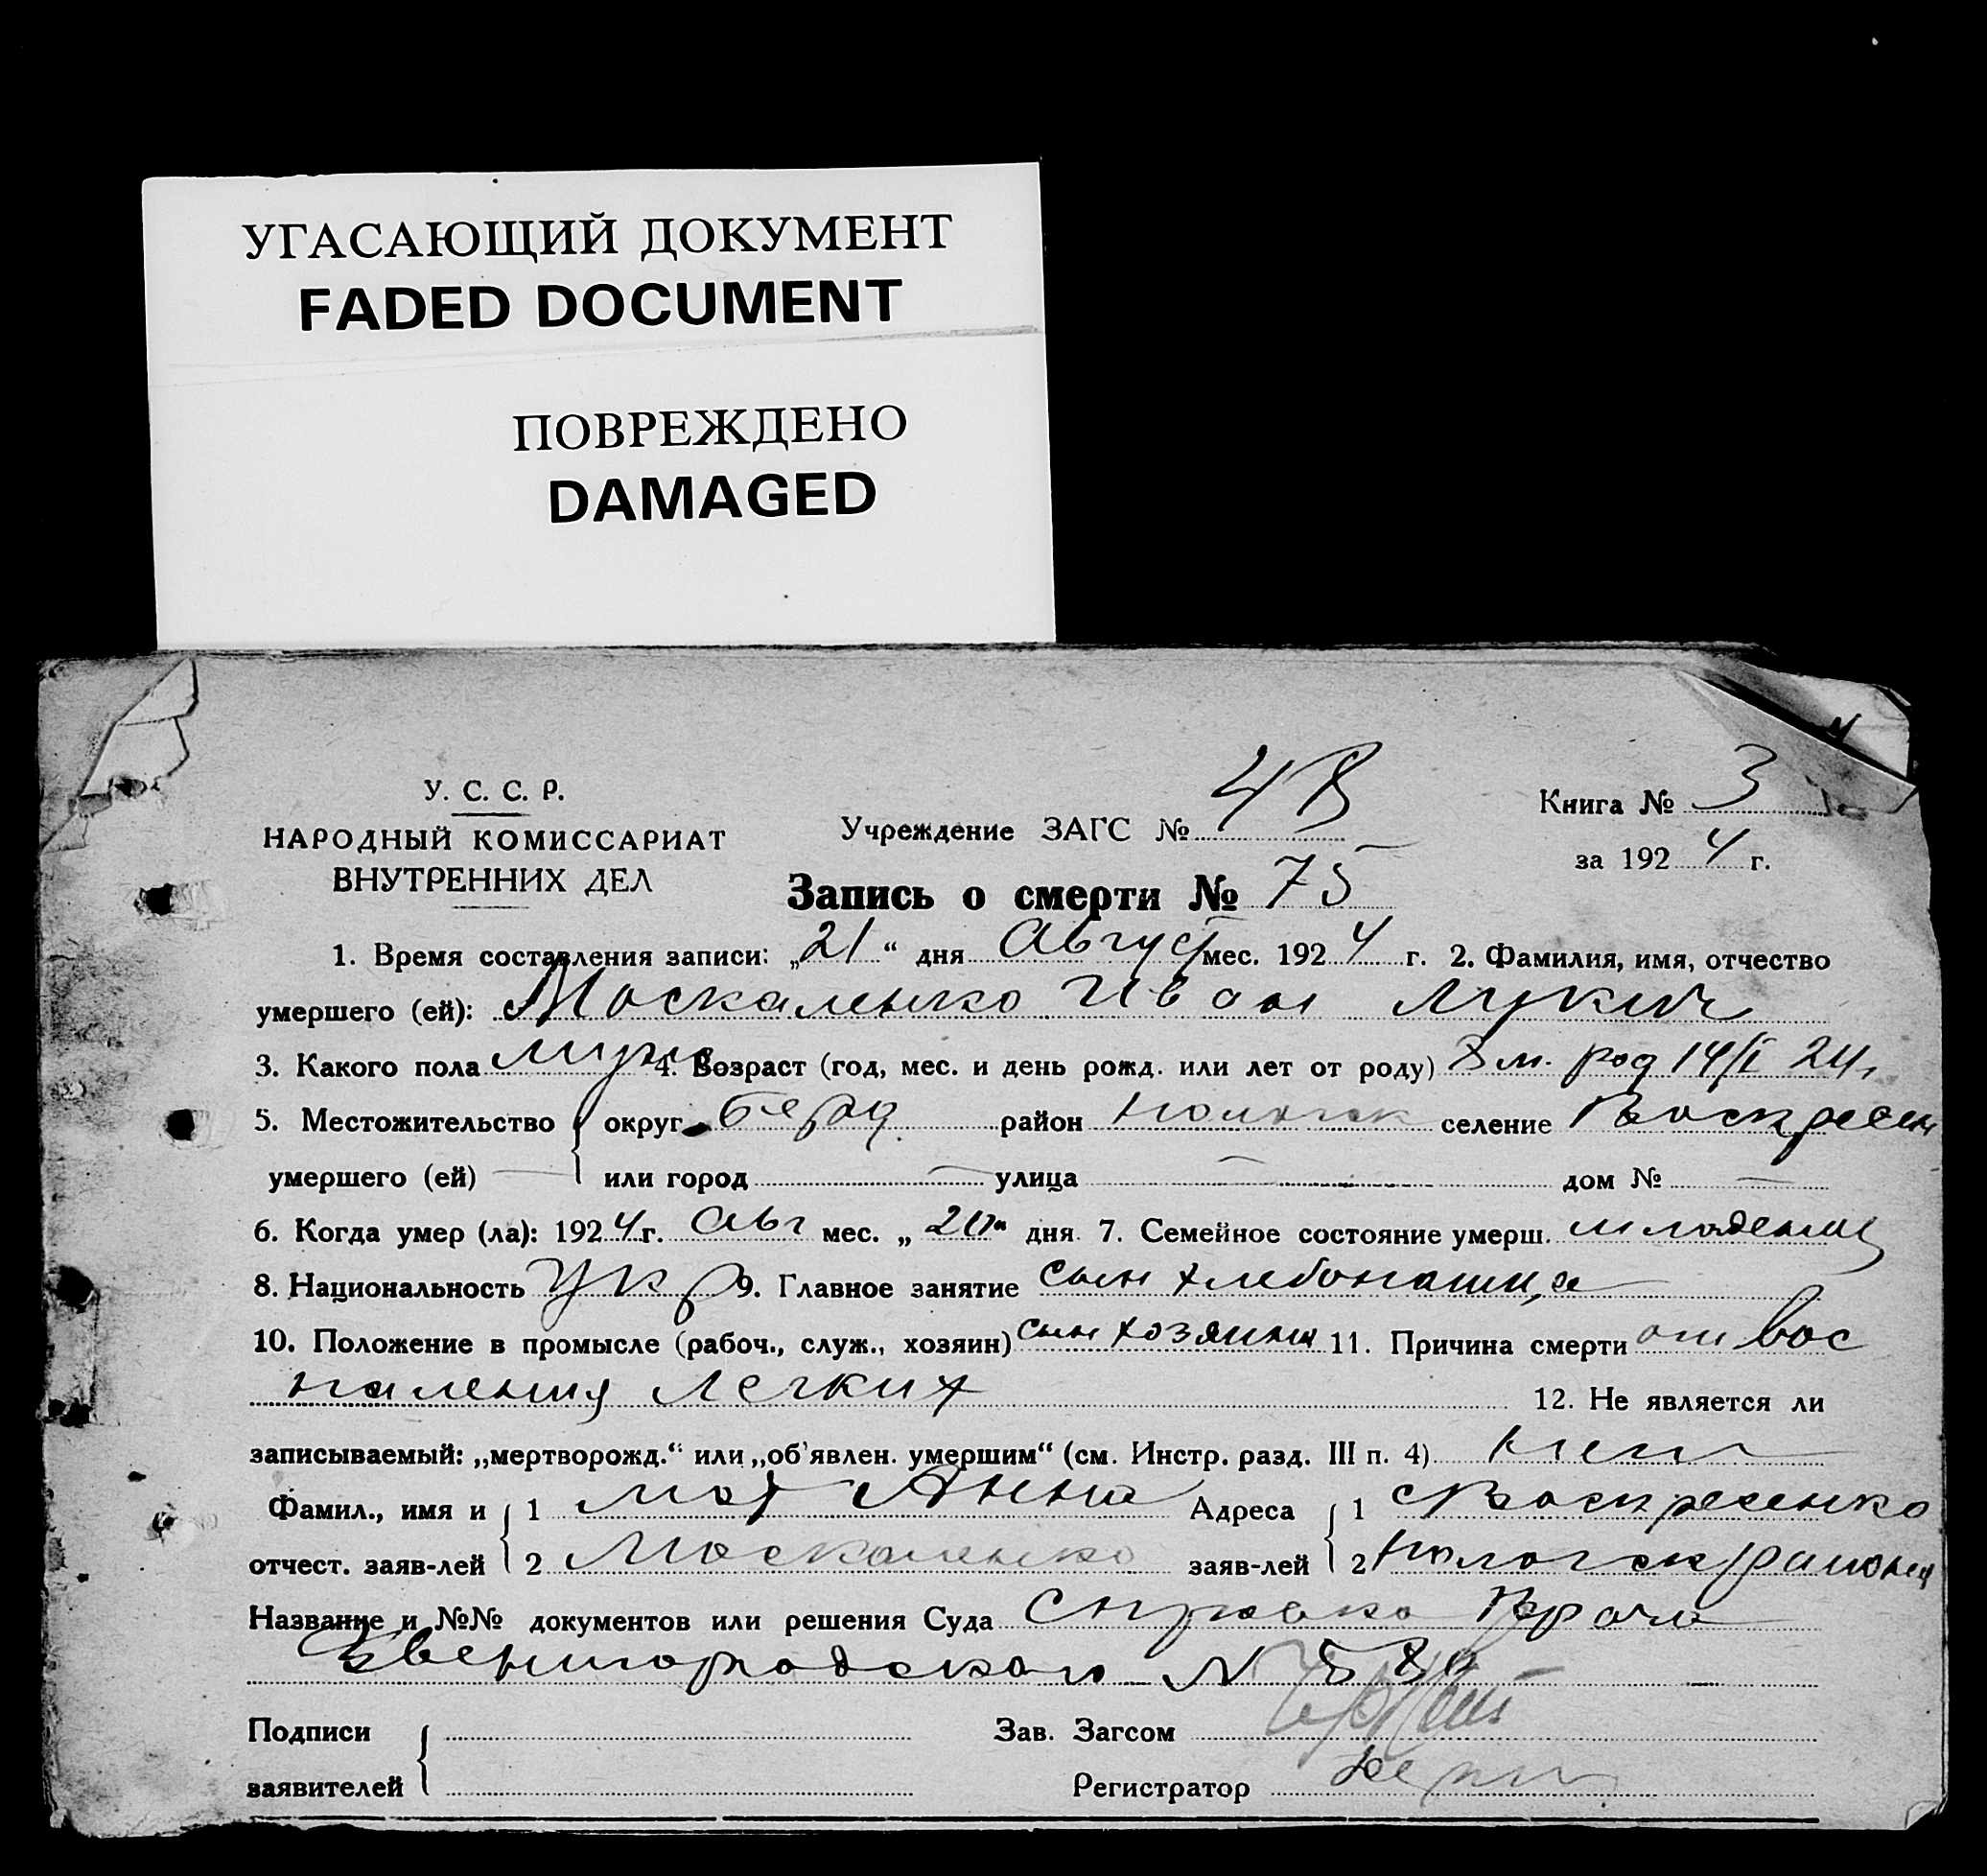 УГАСАЮЩИЙ ДОКУМЕНТ
FADED DOCUMENT
ПОВРЕЖДЕНО
DAMAGED
У. С. С. Р.
НАРОДНЫЙ КОМИССАРИАТ
ВНУТРЕННИХ ДЕЛ
Учреждение ЗАГС №
Книга № 3
за 1924 г.
Запись о смерти № 75
1. Время составления записи: „21“ дня Август мес. 1924 г. 2. Фамилия, имя, отчество
умершего (ей): Москаленко Иван Лукич
3. Какого пола муж 4. Возраст (год, мес. и день рожд. или лет от роду) 8 м. род 14/I 24 г
5. Местожительство округ Берд район Пологск селение Воскресен
умершего (ей) — или город — улица — дом № —
6. Когда умер (ла): 1924 г. Авг мес. „20“ дня. 7. Семейное состояние умерш. младенец
8. Национальность Укр 9. Главное занятие сын хлебопашца
10. Положение в промысле (рабоч., служ., хозяин) сын хозяина 11. Причина смерти от вос
паления Легких 12. Не является ли
записываемый: „мертворожд.“ или „об'явлен. умершим“ (см. Инстр. разд. III п. 4) нет
Фамил., имя и 1 мат Анна Адреса 1 Воскресенко
отчест. заяв-лей 2 Москаленко заяв-лей 2 Пологск района
Название и №№ документов или решения Суда Справка Врача
Звенигородского N
Подписи Зав. Загсом
заявителей Регистратор